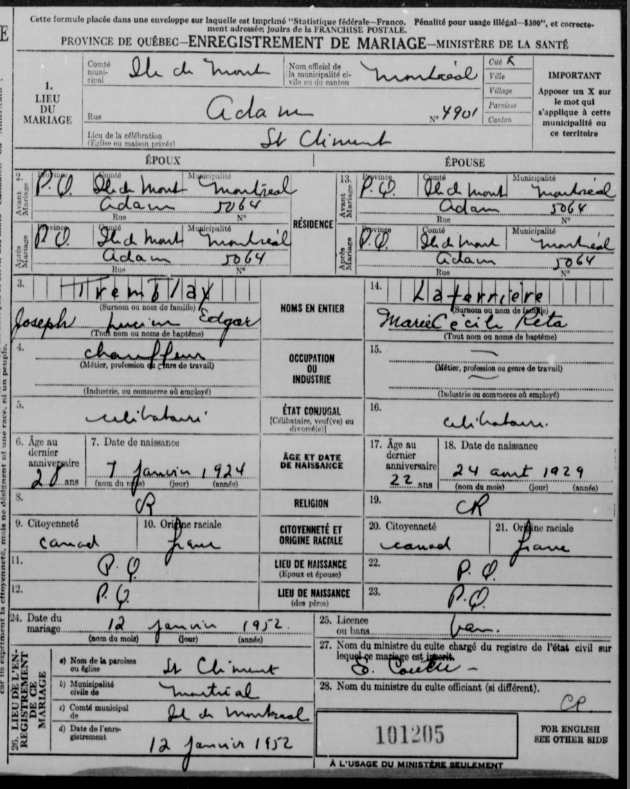 Cette formule placée dans une enveloppe sur laquelle est imprimé "Statistique fédérale—Franco. Pénalité pour usage illégal—$300", et correcte-
ment adressée, jouira de la FRANCHISE POSTALE.
PROVINCE DE QUÉBEC—ENREGISTREMENT DE MARIAGE—MINISTÈRE DE LA SANTÉ
1. LIEU DU MARIAGE
Comté municipal Ile de Mont Nom officiel de la municipalité civile ou du canton Montréal
Cité X Ville Village Paroisse Canton
IMPORTANT
Apposer un X sur le mot qui s'applique à cette municipalité ou ce territoire
Rue Adam N° 4901
Lieu de la célébration (Eglise ou maison privée) St Climent
ÉPOUX ÉPOUSE
2. Avant Mariage Province P.Q. Comté Ile de Mont Municipalité Montréal
Adam 5064
Rue N°
Après Mariage Province P.Q. Comté Ile de Mont Municipalité Montréal
Adam 5064
Rue N°
RÉSIDENCE
13. Avant Mariage Province P.Q. Comté Ile de Mont Municipalité Montréal
Adam 5064
Rue N°
Après Mariage Province P.Q. Comté Ile de Mont Municipalité Montréal
Adam 5064
Rue N°
3. Tremblay
(Surnom ou nom de famille)
Joseph Lucien Edgar
(Tout nom ou noms de baptême)
NOMS EN ENTIER
14. Laferrière
(Surnom ou nom de famille)
Marie Cécile Rita
(Tout nom ou noms de baptême)
4. chauffeur
(Métier, profession ou genre de travail)
(Industrie, ou commerce où employé)
OCCUPATION OU INDUSTRIE
15. —
(Métier, profession ou genre de travail)
—
(Industrie ou commerce où employé)
5. célibataire
ÉTAT CONJUGAL
[Célibataire, veuf(ve) ou divorcé(e)]
16. célibataire
6. Âge au dernier anniversaire 28 ans
7. Date de naissance
7 janvier 1924
(nom du mois) (jour) (année)
ÂGE ET DATE DE NAISSANCE
17. Âge au dernier anniversaire 22 ans
18. Date de naissance
24 aout 1929
(nom du mois) (jour) (année)
8. CR RELIGION 19. CR
9. Citoyenneté canad
10. Origine raciale franc
CITOYENNETÉ ET ORIGINE RACIALE
20. Citoyenneté canad
21. Origine raciale franc
11. P.Q. LIEU DE NAISSANCE (Epoux et épouse) 22. P.Q.
12. P.Q. LIEU DE NAISSANCE (des pères) 23. P.Q.
24. Date du mariage 12 janvier 1952
(nom du mois) (jour) (année)
25. Licence ou bans ban
26. LIEU DE L'ENREGISTREMENT DE CE MARIAGE
a) Nom de la paroisse ou église St Climent
b) Municipalité civile de Montréal
c) Comté municipal de Ile de Montreal
d) Date de l'enregistrement 12 janvier 1952
27. Nom du ministre du culte chargé du registre de l'état civil sur lequel ce mariage est inscrit.
28. Nom du ministre du culte officiant (si différent).
101205
À L'USAGE DU MINISTÈRE SEULEMENT
FOR ENGLISH SEE OTHER SIDE